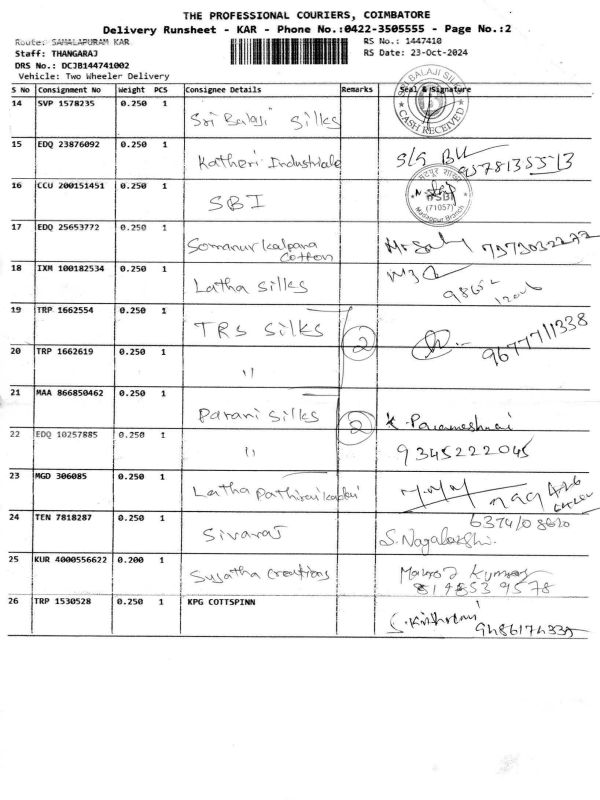 THE PROFESSIONAL COURIERS, COIMBATORE
Delivery Runsheet - KAR - Phone No.:0422-3505555 - Page No.:2
Route: SAMALAPURAM KAR RS No.: 1447410
Staff: THANGARAJ RS Date: 23-Oct-2024
DRS No.: DCJB144741002
Vehicle: Two Wheeler Delivery
S No Consignment No Weight PCS Consignee Details Remarks Seal & Signature
14 SVP 1578235 0.250 1 Sri Balaji Silks SRI BALAJI SILKS CASH RECEIVED
15 EDQ 23876092 0.250 1 Katheri Industriale
16 CCU 200151451 0.250 1 SBI SBI (71057)
17 EDQ 25653772 0.250 1 Somanur Kalpana
Cotton
18 IXM 100182534 0.250 1 Latha Silks
19 TRP 1662554 0.250 1 TRS Silks 2 9677711338
20 TRP 1662619 0.250 1 "
21 MAA 866850462 0.250 1 Parani Silks 2 K. Parameshwai
22 EDQ 10257885 0.250 1 " 9345222045
23 MGD 306085 0.250 1 Latha
24 TEN 7818287 0.250 1 Sivaraj S. Nagalakshi.
25 KUR 4000556622 0.200 1 Sujatha Creations Manoj Kumar
8148539578
26 TRP 1530528 0.250 1 KPG COTTSPINN